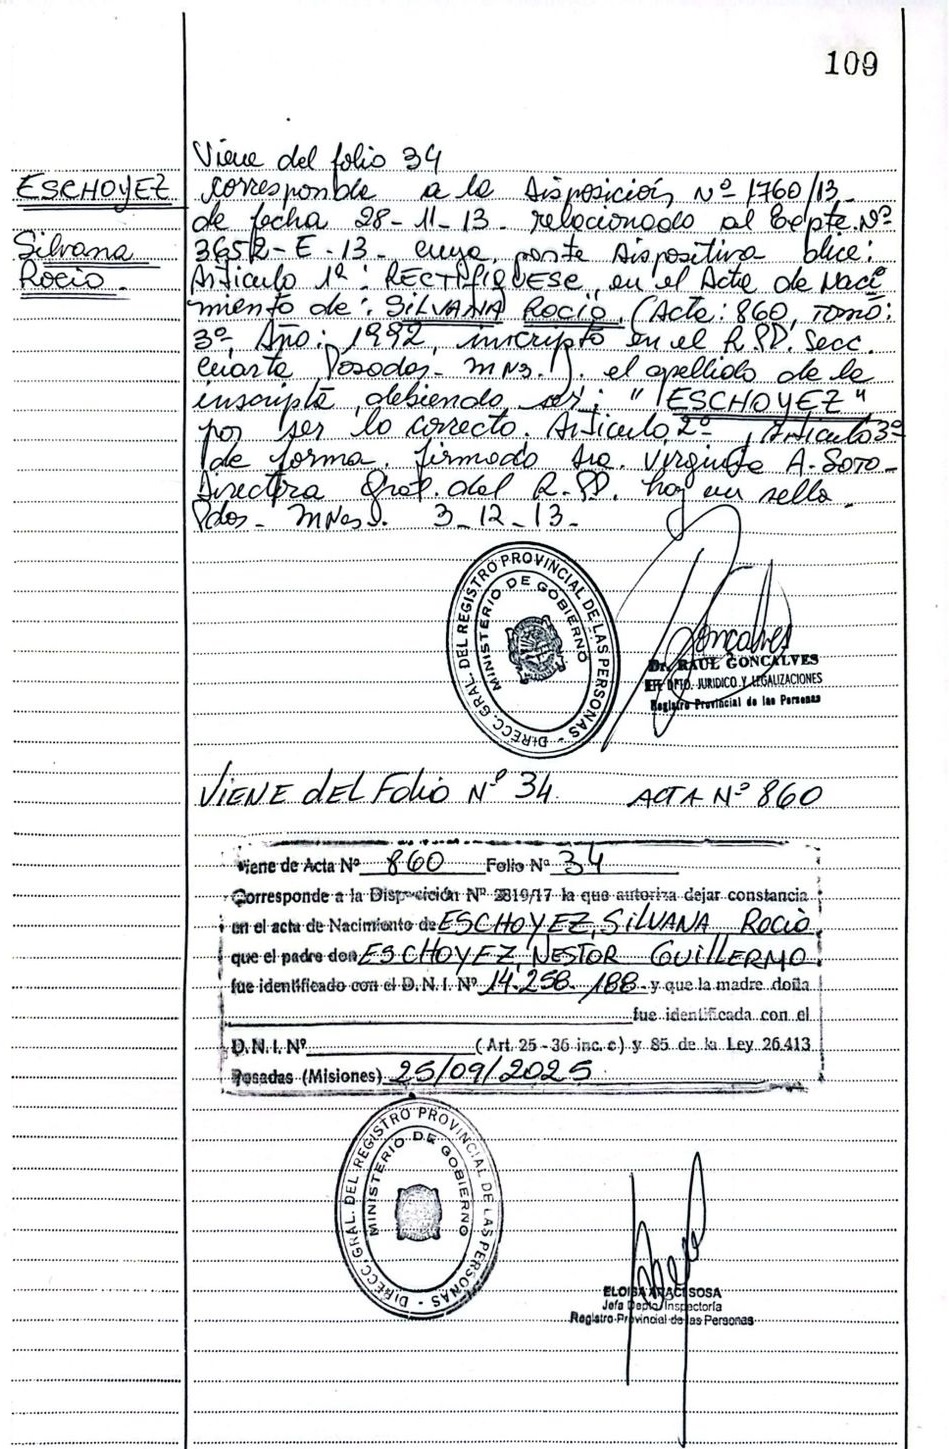 109
ESCHOYEZ
Silvana
Rocio.
Viene del folio 34
corresponde a la Disposición Nº 1760/13
de fecha 28-11-13. relacionado al Expte. Nº
3652-E-13. cuya parte Dispositiva dice:
Articulo 1º: RECTIFIQUESE, en el Acta de Naci
miento de: SILVANA ROCIO. (Acta: 860, TOMO:
3º, Año: 1992, inscripto en el R.PP. Secc.
Cuarta Posadas- MNS.). el apellido de la
inscripta, debiendo ser: "ESCHOYEZ"
por ser lo correcto. Articulo 2º, Articulo 3º
de forma. firmado Sra. Virginia A. SOTO-
Directora Gral. del R.PP. hay un sello.
Pdos- MNes). 3-12-13-
DIRECC. GRAL. DEL REGISTRO PROVINCIAL DE LAS PERSONAS -
MINISTERIO DE GOBIERNO
Goncalves
Dr. RAUL GONCALVES
DPTO. JURIDICO Y LEGALIZACIONES
Registro Provincial de las Personas
VIENE dEL Folio Nº 34. ACTA Nº 860
Viene de Acta Nº 860 Folio Nº 34
Corresponde a la Disposición Nº 2819/17 la que autoriza dejar constancia
en el acta de Nacimiento de ESCHOYEZ, SILVANA ROCIO
que el padre don ESCHOYEZ NESTOR GUILLERMO
fue identificado con el D.N.I. Nº 14.258.188 y que la madre doña
fue identificada con el
D.N.I. Nº ( Art. 25 - 36 inc. c) y 85 de la Ley 26.413
Posadas (Misiones) 25/09/2025
DIRECC. GRAL. DEL REGISTRO PROVINCIAL DE LAS PERSONAS -
MINISTERIO DE GOBIERNO
ELOISA ARACI SOSA
Jefa Depto. Inspectoría
Registro Provincial de las Personas